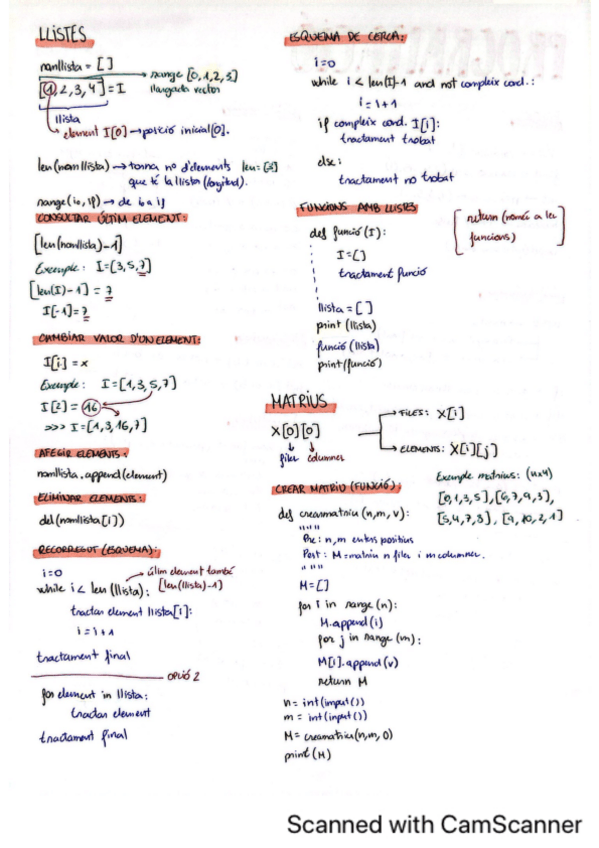 LLISTES
nomllista = [ ]
[1,2,3,4] = I
→ range [0,1,2,3]
llargada vector
llista
element I[0] → posició inicial [0].
len(nomllista) → torna nº d'elements
que té la llista (longitud).
range(i0, if) → de i0 a if
CONSULTAR ÚLTIM ELEMENT:
[len(nomllista)-1]
Exemple: I=[3,5,7]
[len(I)-1] = 7
I[-1]=7
CAMBIAR VALOR D'UN ELEMENT:
I[i] = x
Exemple: I=[1,3,5,7]
I[2] = 16
>>> I=[1,3,16,7]
AFEGIR ELEMENTS:
nomllista.append(element)
ELIMINAR ELEMENTS:
del(nomllista[i])
RECORREGUT (ESQUEMA):
i=0
while i < len(llista):
→ úlim element també
[len(llista)-1]
tractar element llista[i]:
i=i+1
tractament final
OPCIÓ 2
for element in llista:
tractar element
tractament final
ESQUEMA DE CERCA:
i=0
while i < len(I)-1 and not compleix cond.:
i=i+1
if compleix cond. I[i]:
tractament trobat
else:
tractament no trobat
FUNCIONS AMB LLISTES
[return (només a les
funcions)]
def funció(I):
I=[]
tractament funció
llista = [ ]
print (llista)
funció (llista)
print(funció)
MATRIUS
X[0][0]
files columnes
→ FILES: X[i]
→ ELEMENTS: X[i][j]
Exemple matrius: (4x4)
[0,1,3,5],[6,7,9,3],
[5,4,7,8], [9,10,2,1]
CREAR MATRIU (FUNCIÓ):
def creamatriu(n,m,v):
"""
Pre: n,m enters positius
Post: M=matriu n files i m columnes.
"""
M=[]
for i in range(n):
M.append(i)
for j in range(m):
M[i].append(v)
return M
n= int(input())
m = int(input())
M= creamatriu(n,m,0)
print(M)
Scanned with CamScanner